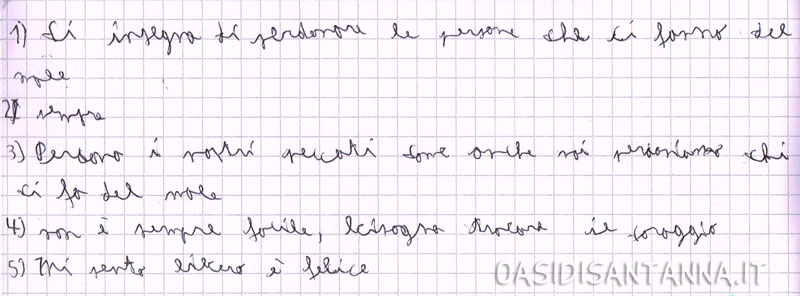 1) Ci insegna di perdonare le persone che ci fanno del
male
2) sempre
3) Perdono i nostri peccati come anche noi perdoniamo chi
ci fa del male
4) non è sempre facile, bisogna trovare il coraggio
5) Mi sento libero è felice
OASIDISANTANNA.IT